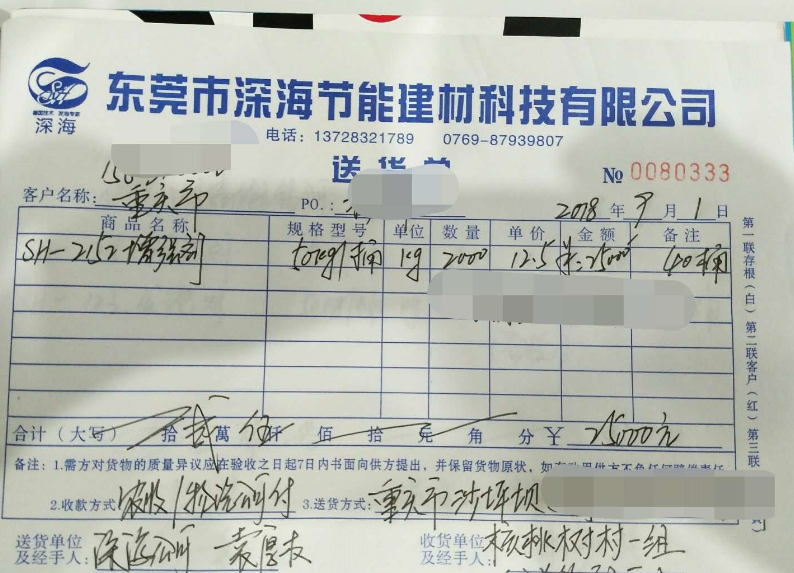 深海
东莞市深海节能建材科技有限公司
电话：13728321789 0769-87939807
送货单
№ 0080333
客户名称： 重庆市 PO.：
2018 年 9 月 1 日
商品名称 规格型号 单位 数量 单价 金额 备注
SH-2152增强剂 50kg/桶 kg 2000 12.5 25000 40桶
合计（大写） 拾 贰 萬 伍 仟 佰 拾 元 角 分 ￥ 25000元
备注：1.需方对货物的质量异议应在验收之日起7日内书面向供方提出，并保留货物原状，如
2.收款方式 /物流公司付 3.送货方式：重庆市沙坪坝
送货单位及经手人： 深海公司 袁厚友
收货单位及经手人： 核桃树村一组
第一联存根（白）第二联客户（红）第三联